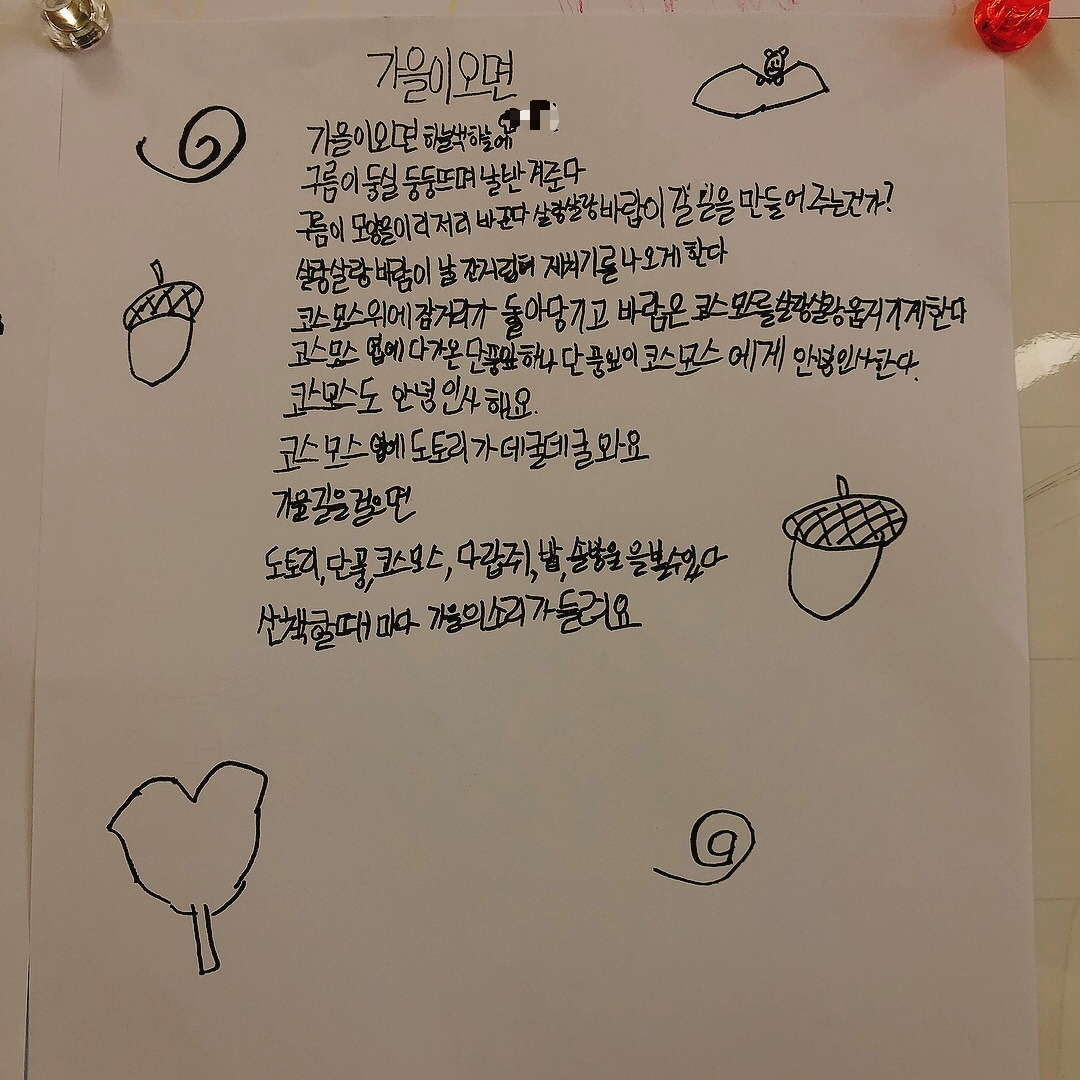 가을이오면
가을이오면 하늘색하늘에
구름이 둥실 둥둥뜨며 날 반겨준다
구름이 모양을이리저리 바꾼다 살랑살랑바람이 갈 길을 만들어주는건가?
살랑살랑 바람이 날 간지럽혀 재채기를나오게 한다
코스모스위에 잠자리가 돌아당기고 바람은 코스모스를살랑살랑움지기게한다
코스모스 옆에 다가온 단풍잎하나 단풍잎이코스모스 에게 안녕인사한다.
코스모스도 안녕 인사해요.
코스모스 옆에 도토리가 데굴데굴 와요
가을길을걸으면
도토리,단풍,코스모스, 다람쥐,밤,솔방울 을볼수있다
산책할때 마다 가을의소리가 들려요